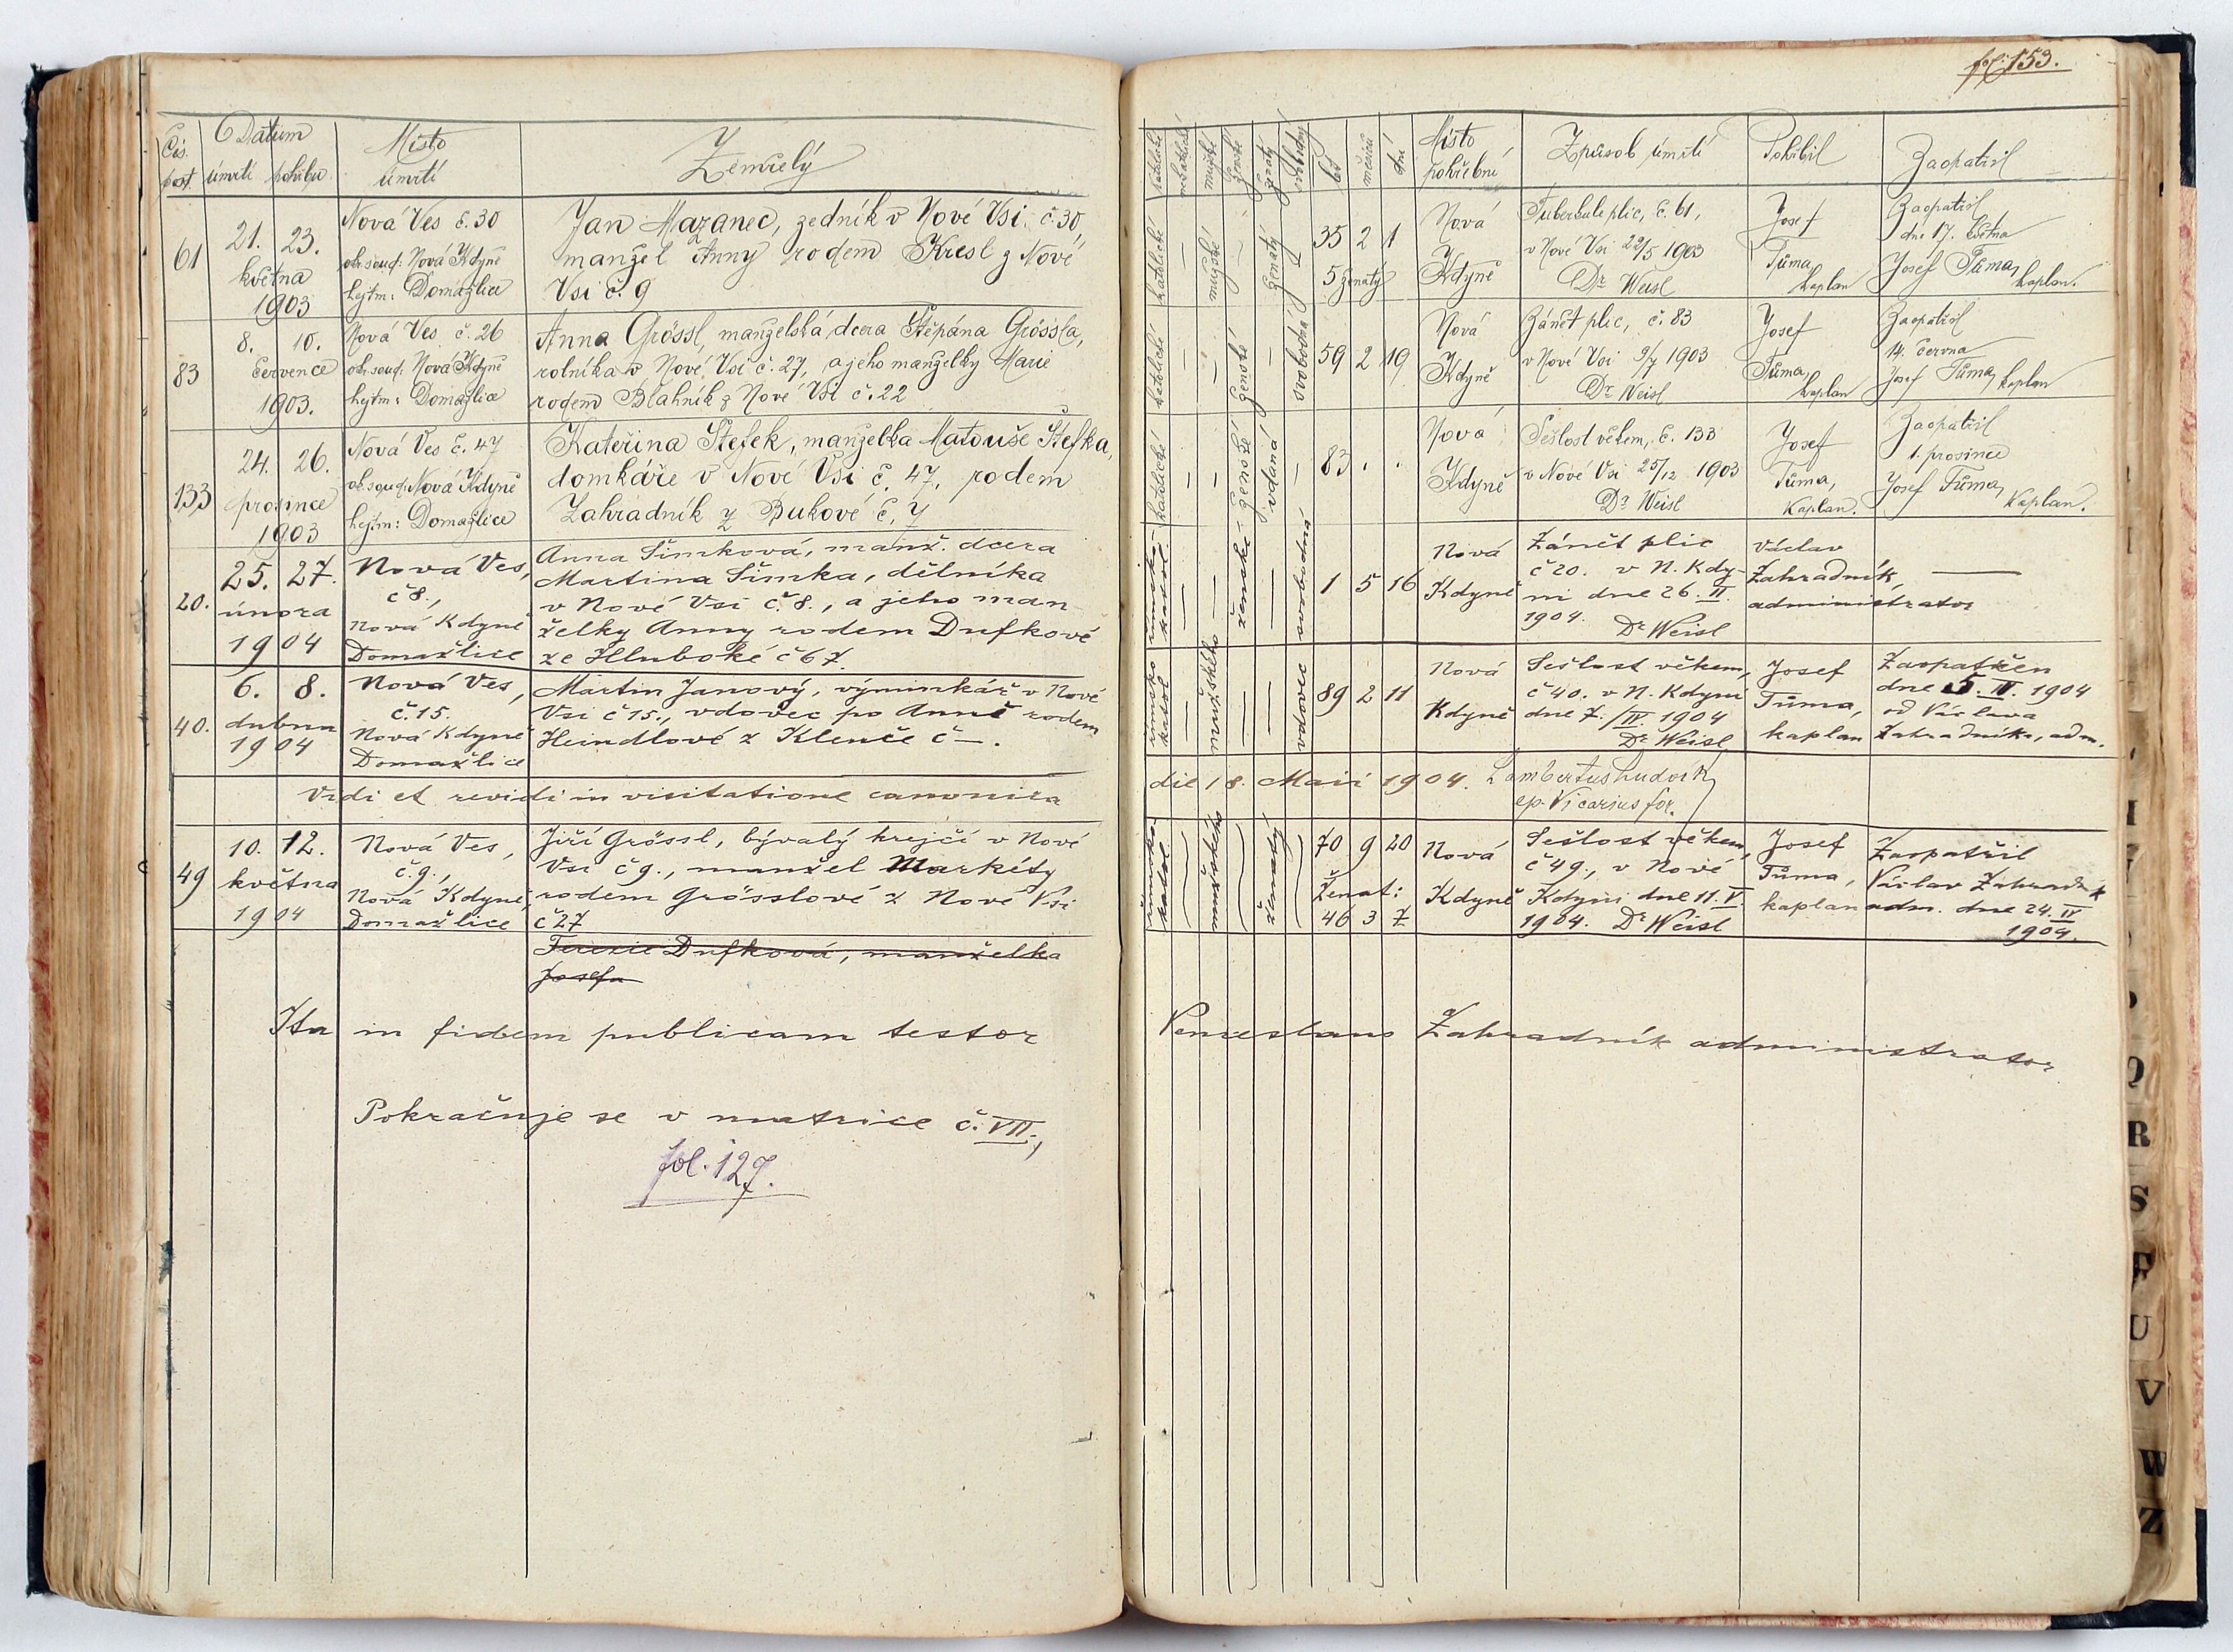 fol. 153.
Čís. post.
Datum
úmrtí pohřbu
Místo
úmrtí
Zemřelý
61
21. 23.
května
1903
Nová Ves č. 30
okr. soud: Nová Kdyně
hejtm: Domažlice
Jan Mazanec, zedník v Nové Vsi č. 30,
manžel Anny rodem Kresl z Nové
Vsi č. 9
83
8. 10.
července
1903.
Nová Ves č. 26
okr. soud: Nová Kdyně
hejtm: Domažlice
Anna Grössl, manželská dcera Štěpána Grössla,
rolníka v Nové Vsi č. 27, a jeho manželky Marie
rodem Blahník z Nové Vsi č. 22
133
24. 26.
prosince
1903
Nová Ves č. 47
okr. soud: Nová Kdyně
hejtm: Domažlice
Kateřina Štefek, manželka Matouše Štefka,
domkáře v Nové Vsi č. 47, rodem
Zahradník z Bukové č. 7
20.
25. 27.
února
1904
Nová Ves,
č 8.,
Nová Kdyně
Domažlice
Anna Šimková, manž. dcera
Martina Šimka, dělníka
v Nové Vsi č. 8., a jeho man-
želky Anny rodem Dufkové
ze Hluboké č 67.
40.
6. 8.
dubna
1904
Nová Ves,
č. 15.
Nová Kdyně
Domažlice
Martin Janový, výminkář v Nové
Vsi č 15., vdovec po Anně rodem
Heindlové z Klenče č —.
Vidi et revidi in visitatione canonica
49
10. 12.
května
1904
Nová Ves,
č. 9.,
Nová Kdyně,
Domažlice
Jiří Grössl, bývalý krejčí v Nové
Vsi č 9., manžel Markéty
rodem Grösslové z Nové Vsi
č 27
Terezie Dufková, manželka
Josefa
Ita in fidem publicam testor
Pokračuje se v matrice č. VII.,
fol. 127.
katolické
nekatolické
mužské
ženské
ženatý
svobodný
let
měsíců
dní
Místo
pohřební
Způsob úmrtí
Pohřbil
Zaopatřil
katolické
mužské
ženatý
35 2 1
5 ženatý
Nová
Kdyně
Tuberkule plic, č. 61,
v Nové Vsi 22/5 1903
Dr Weisl
Josef
Tůma,
kaplan
Zaopatřil
dne 17. května
Josef Tůma,
kaplan.
katolické
ženské
svobodná
59 2 19
Nová
Kdyně
Zánět plic, č. 83
v Nové Vsi 9/7 1903
Dr Weisl
Josef
Tůma,
kaplan
Zaopatřil
14. června
Josef Tůma, kaplan
katolické
ženské
vdaná
83 . .
Nová
Kdyně
Sešlost věkem, č. 133
v Nové Vsi 25/12 1903
Dr Weisl
Josef
Tůma,
Kaplan.
Zaopatřil
1. prosince
Josef Tůma,
Kaplan.
římsko-
katol.
ženské
svobodná
1 5 16
Nová
Kdyně
Zánět plic
č 20. v N. Kdy-
ni dne 26. II.
1904.
Dr Weisl
Václav
Zahradník,
administrator
římsko
katol.
mužského
vdovec
89 2 11
Nová
Kdyně
Sešlost věkem,
č 40. v N. Kdyni
dne 7./IV. 1904
Dr Weisl
Josef
Tůma,
kaplan
Zaopatřen
dne 5. IV. 1904
od Václava
Zahradníka, adm.
die 18. Maii 1904.
ep. Vicarius for.
římsko-
katol.
mužského
ženatý
70 9 20
Ženat:
46 3 7
Nová
Kdyně
Sešlost věkem,
č 49., v Nové
Kdyni dne 11. V.
1904. Dr Weisl
Josef
Tůma,
kaplan
Zaopatřil
Václav Zahradník
adm. dne 24. IV
1904.
Venceslaus Zahradník administrator
R
S
U
V
W
Z